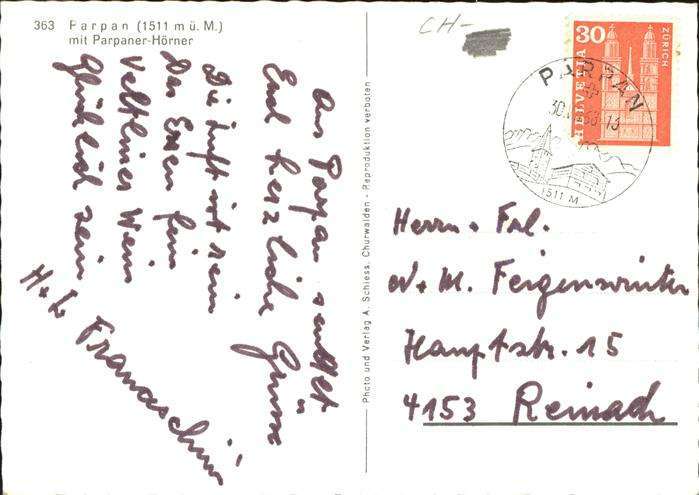 363 Parpan (1511 m ü. M.)
mit Parpaner-Hörner
Aus Parpan sendet
Euch herzliche Grüsse
Die Luft ist rein
Das Essen fein
Veltliner Wein
Glücklich sein
H + L Franceschini
Photo und Verlag A. Schiess, Churwalden - Reproduktion verboten
CH-
HELVETIA
30
ZÜRICH
PARPAN
1511 M
Herrn + Frl.
W + M. Feigenwinter
Hauptstr. 15
4153 Reinach